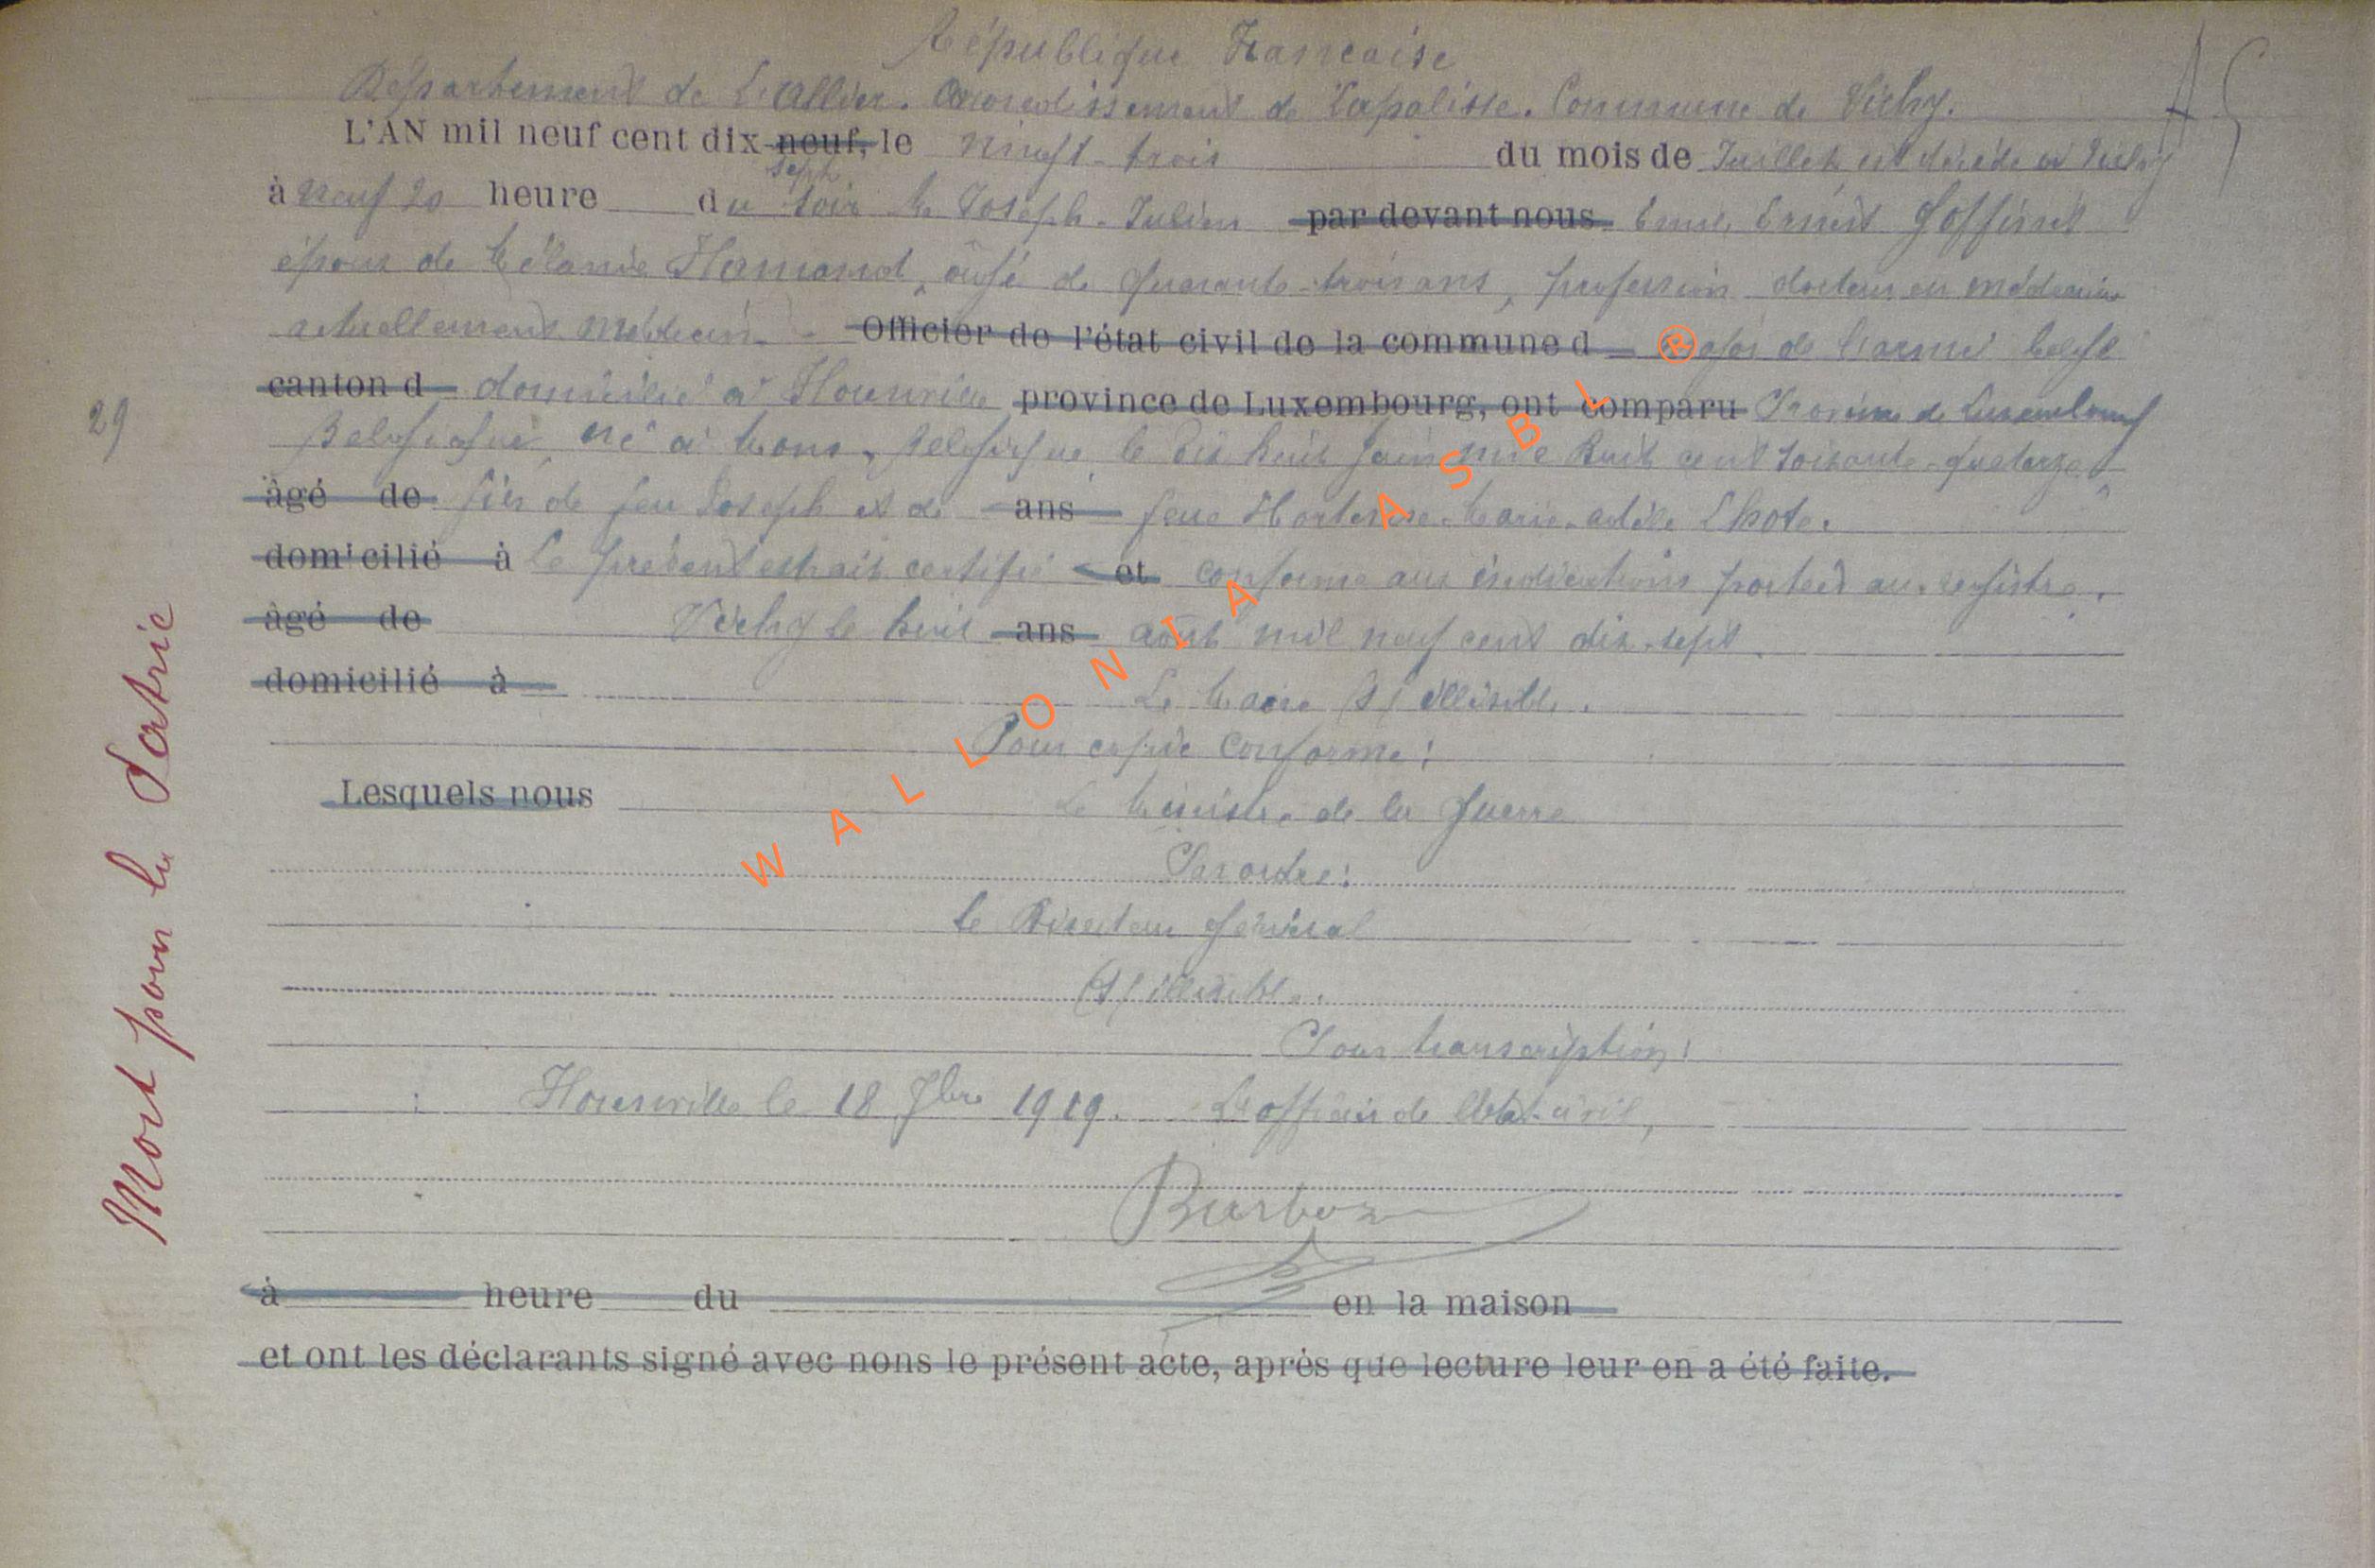 République Française
Département de L'Allier. Arrondissement de Lapalisse. Commune de Vichy.
L'AN mil neuf cent dix-neuf, le vingt-trois du mois de Juillet est décédé à Vichy
sept
à neuf 20 heure du soir M. Joseph-Julien par devant nous Emile Ernest Goffinet
époux de Mélanie Hamand, âgé de quarante-trois ans, profession docteur en médecine
actuellement Médecin Officier de l'état civil de la commune d de l'armée belge
canton d domicilié à Houmville province de Luxembourg, ont comparu Province de Luxembourg
29
Belgique, né à Mons, Belgique le dix huit juin mil huit cent soixante-quatorze,
âgé de fils de feu Joseph et de ans feue Hortense-Marie-Adèle Lhote.
domicilié à Le présent extrait certifié et conforme aux indications portées au registre.
âgé de Vichy le huit ans août mil neuf cent dix-sept
domicilié à Le Maire (s) illisible.
Pour copie conforme:
Lesquels nous Le Ministre de la Guerre
Par ordre:
Le Directeur Général
(s) illisible.
Pour transcription:
le 18 7bre 1919. L'officier de l'état-civil,
à heure du en la maison
et ont les déclarants signé avec nons le présent acte, après que lecture leur en a été faite.
Mort pour la Patrie
WALLONIA ASBL ®